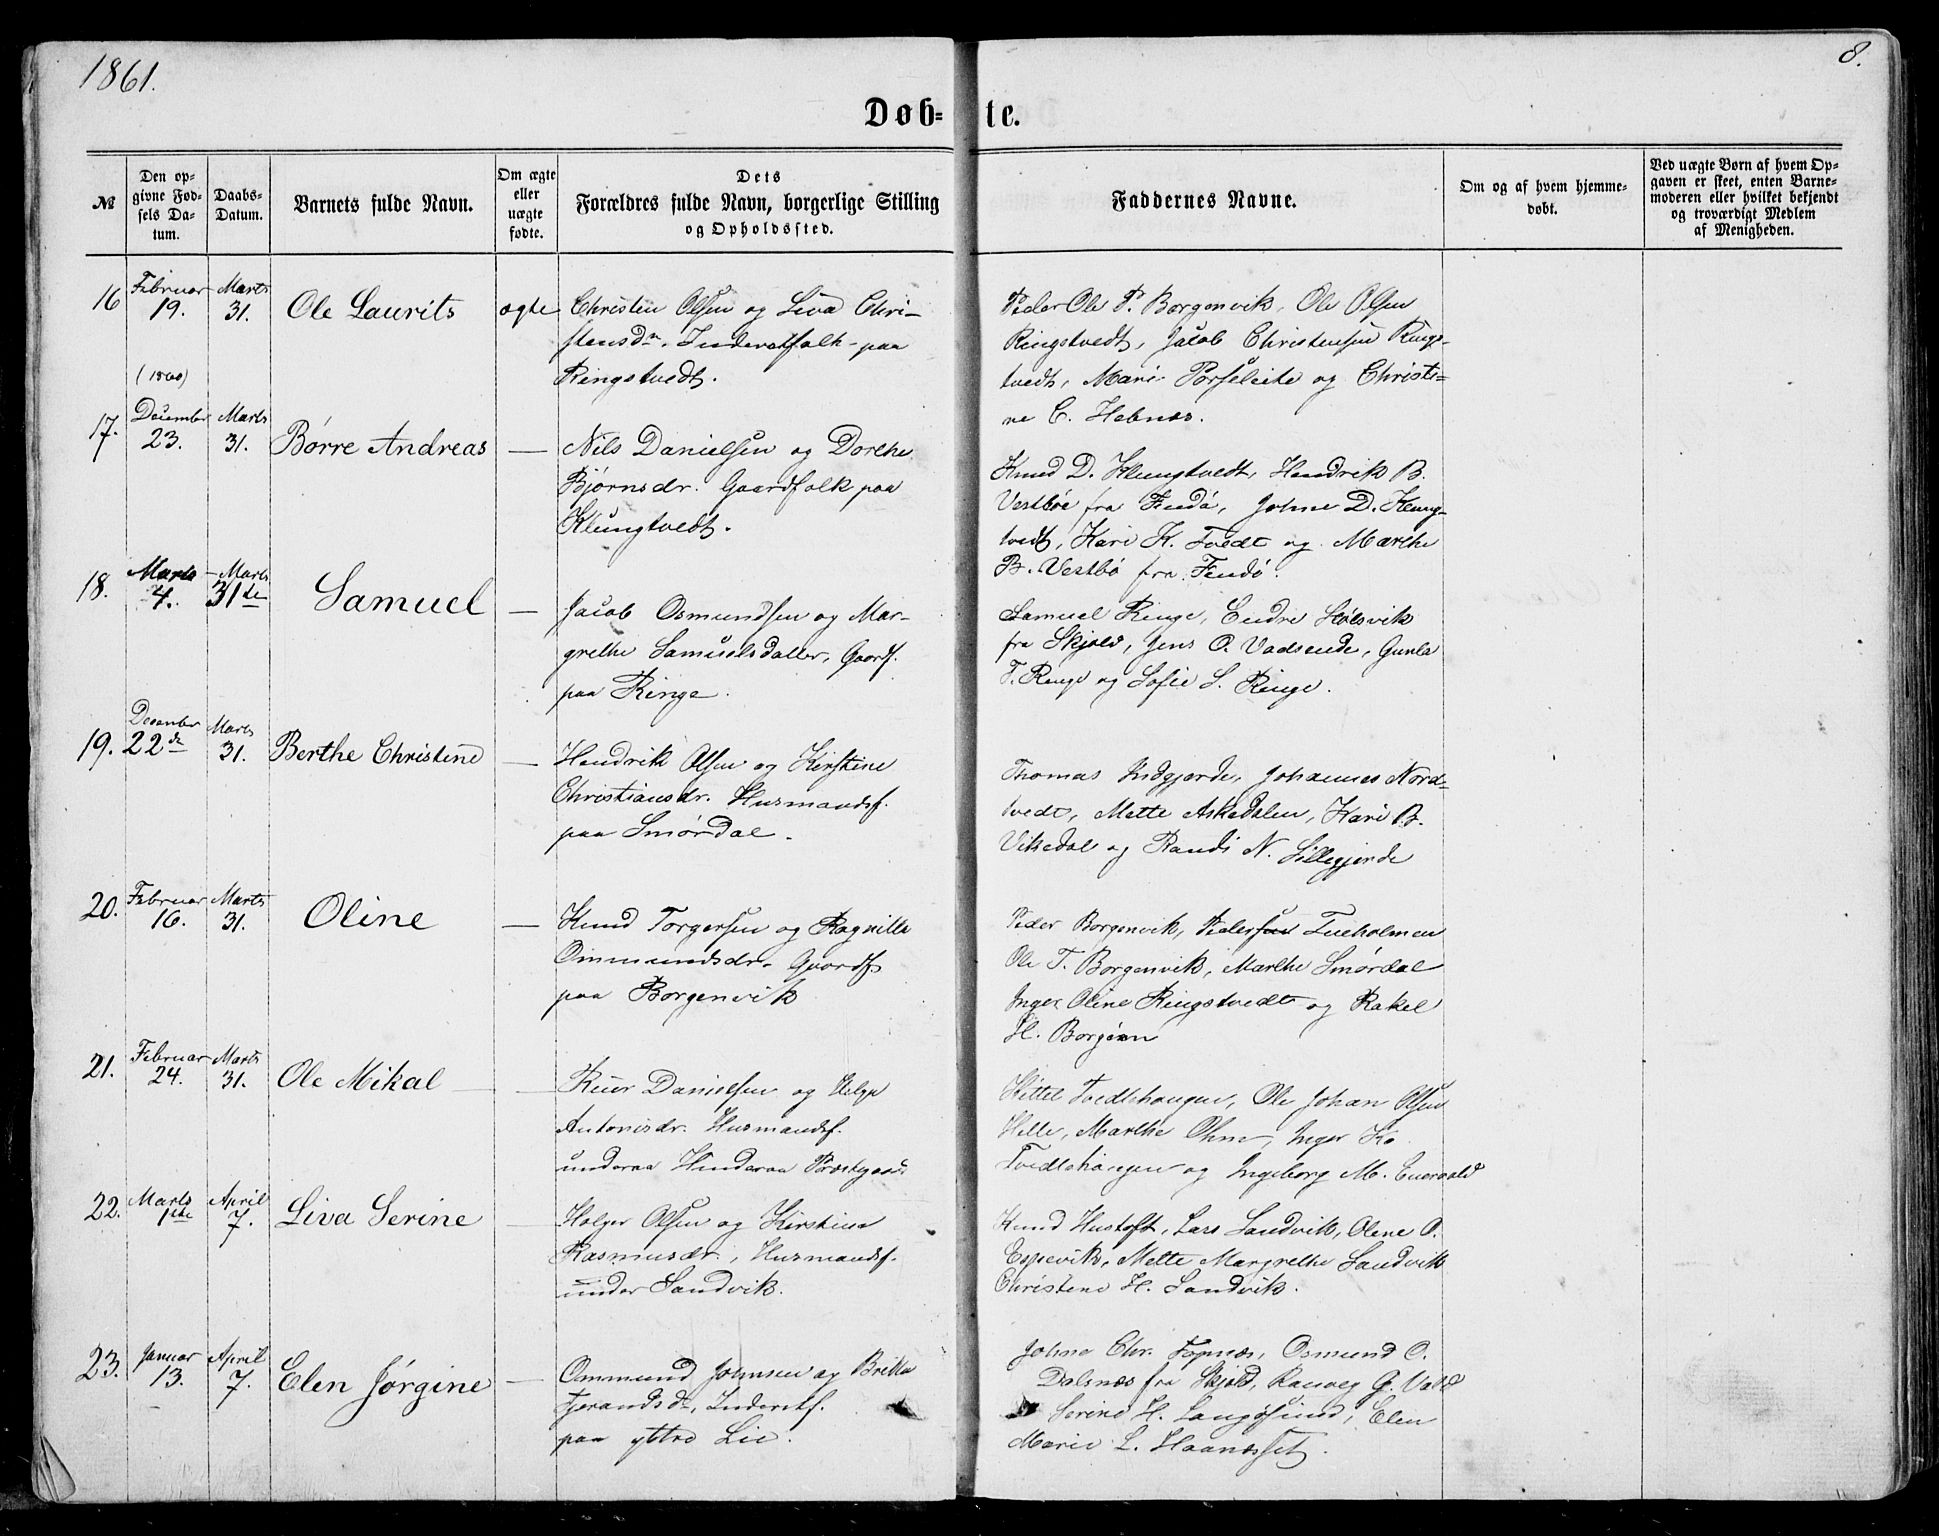 1861.
8.
Døb-te.
№
Den opgivne Fødsels Datum.
Daabs-Datum.
Barnets fulde Navn.
Om ægte eller uægte fødte.
Dets Forældres fulde Navn, borgerlige Stilling og Opholdssted.
Faddernes Navne.
Om og af hvem hjemmedøbt.
Ved uægte Børn af hvem Opgaven er skeet, enten Barnemoderen eller hvilket bekjendt og troværdigt Medlem af Menigheden.
16
Februar
19.
Marts
31.
Ole Laurits
ægte
Christen Olsen og Siva Chri-
stensdr. Inderstfolk paa
Ringstvedt.
Peder Ole P. Borgenvik, Ole Olsen
Ringstvedt, Jacob Christensen Rings-
tvedt, Mari Porseleite og Christi-
ne C. Hebnes.
17.
(1860)
December
23.
Marts
31.
Børre Andreas
—
Nils Danielsen og Dorthe
Bjørnsdr. Gaardfolk paa
Klungtvedt.
Knud D. Klungtvedt, Hendrik B.
Vestbøe fra Findø, Johne D. Klung-
tvedt, Kari K. Tvedt og Marthe
B. Vestbø fra Findø.
18.
Marts
4.
Marts
31te
Samuel
—
Jacob Osmundsen og Mar-
grethe Samuelsdatter, Gaardf.
paa Ringe.
Samuel Ringe, Endre Hølsvik
fra Skjold, Jens O. Vadsende, Gunla
T. Ringe og Sofie S. Ringe.
19.
December
22de
Marts
31.
Berthe Christine
—
Hendrik Olsen og Kirstine
Christiansdr. Husmandsf.
paa Smørdal.
Thomas Indgjerde, Johannes Nord-
tvedt, Mette Askedalen, Kari B.
Vikedal og Randi N. Lillegjerde
20.
Februar
16.
Marts
31.
Oline
—
Knud Torgersen og Ragnilla
Ommundsdr. Gaardf.
paa Borgenvik
Peder Borgenvik, Peder Tveholmen
Ole T. Borgenvik, Marthe Smørdal
Inger Oline Ringstvedt og Rakel
H. Borgøen
21.
Februar
24.
Marts
31.
Ole Mikal
—
Danielsen og Helga
Antonisdr. Husmandsf.
under Hinderaa Præstgaard
Kittel Tvedtehaugen, Ole Johan Olsen
Helle, Marthe Ohne, Inger K.
Tvedtehaugen og Ingeborg M.
22.
Marts
1ste
April
7.
Liva Serine
Holger Olsen og Kirstine
Rasmusdr., Husmandsf.
under Sandvik.
Knud Hustoft, Lars Sandvik, Olene O.
Espevik, Mette Margrethe Sandvik
Christene H. Sandvik.
23.
Januar
13.
April
7.
Elen Jørgine
—
Ommund Johnsen og Britta
Tjerandsdr., Inderstf.
paa yttre Lie.
Johne Chr. Fopnæs, Osmund O.
Dalsnæs fra Skjold, Ranveg G. Valle
Serine H. Langøsund, Elen
Marie L. Haanesset.